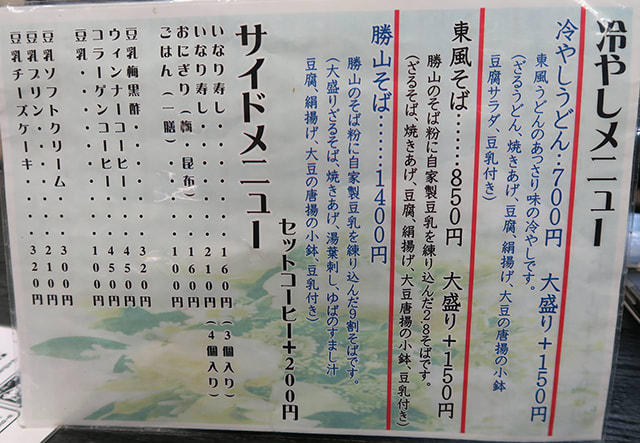 冷やしメニュー
冷やしうどん‥700円　大盛り＋150円
東風うどんのあっさり味の冷やしです。
(ざるうどん、焼きあげ、豆腐、絹揚げ、大豆の唐揚の小鉢
豆腐サラダ、豆乳付き)
東風そば‥‥‥850円　大盛り＋150円
勝山のそば粉に自家製豆乳を練り込んだ２８そばです。
(ざるそば、焼きあげ、豆腐、絹揚げ、大豆唐揚の小鉢、豆乳付き)
勝山そば‥‥‥1400円
勝山のそば粉に自家製豆乳を練り込んだ９割そばです。
(大盛りざるそば、焼きあげ、湯葉刺し、ゆばのすまし汁
豆腐、絹揚げ、大豆の唐揚の小鉢、豆乳付き)
セットコーヒー＋200円
サイドメニュー
いなり寿し・・・・・160円(3個入り)
いなり寿し・・・・・210円(4個入り)
おにぎり(梅・昆布)・・160円
ごはん(一膳)・・・・100円
豆乳梅黒酢・・・・・320円
ウィンナーコーヒー・・450円
コラーゲンコーヒー・・450円
豆乳・・・・・・・・100円
豆乳ソフトクリーム・・300円
豆乳プリン・・・・・210円
豆乳チーズケーキ・・・320円